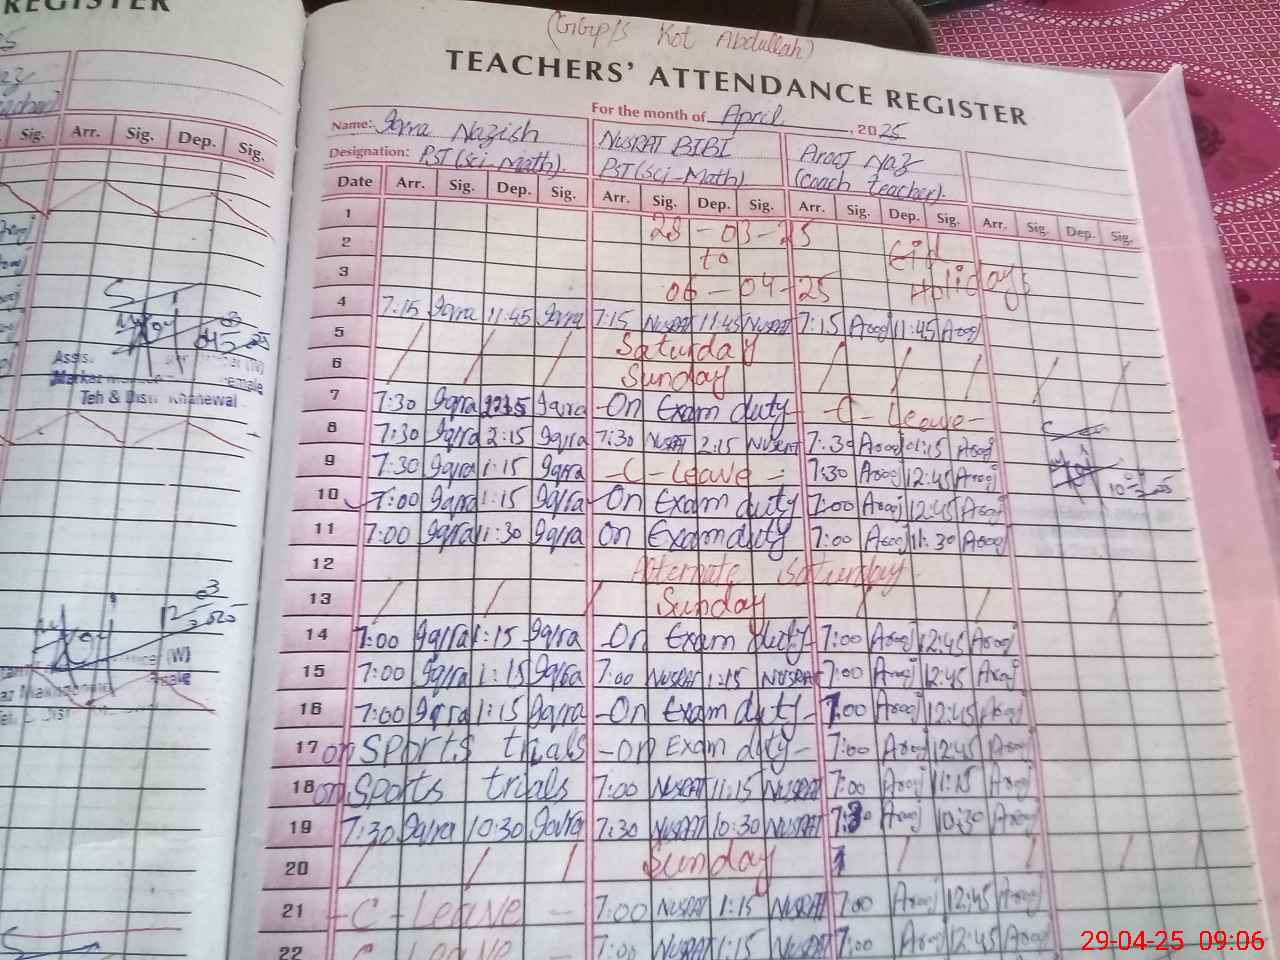 REGISTER
Sig. Arr. Sig. Dep. Sig.
Teh & Distt Khanewal
(GGP/S Kot Abdullah)
TEACHERS' ATTENDANCE REGISTER
For the month of April, 2025
Name: Iqra Nazish NUSRAT BIBI Arooj Naz
Designation: PST (Sci-Math). PST (Sci-Math) (Coach teacher).
Date Arr. Sig. Dep. Sig. Arr. Sig. Dep. Sig. Arr. Sig. Dep. Sig. Arr. Sig. Dep. Sig.
1 28-03-25
2 to Eid
3 06-04-25 Holidays
4 7:15 Iqra 11:45 Iqra 7:15 NUSRAT 11:45 NUSRAT 7:15 Arooj 11:45 Arooj
5 Saturday
6 Sunday
7 7:30 Iqra Iqra -On Exam duty- -C-Leave-
8 7:30 Iqra 2:15 Iqra 7:30 NUSRAT 2:15 NUSRAT 7:30 Arooj 01:15 Arooj
9 7:30 Iqra 1:15 Iqra -C-Leave- 7:30 Arooj 12:45 Arooj
10 7:00 Iqra 1:15 Iqra -On Exam duty 7:00 Arooj 12:45 Arooj
11 7:00 Iqra 11:30 Iqra On Exam duty 7:00 Arooj 11:30 Arooj
12 Alternate Saturday
13 Sunday
14 7:00 Iqra 1:15 Iqra -On Exam duty 7:00 Arooj 12:45 Arooj
15 7:00 Iqra 1:15 Iqra 7:00 NUSRAT 1:15 NUSRAT 7:00 Arooj 12:45 Arooj
16 7:00 Iqra 1:15 Iqra -On Exam duty- 7:00 Arooj 12:45 Arooj
17 on Sports trials -on Exam duty- 7:00 Arooj 12:45 Arooj
18 on Sports trials 7:00 NUSRAT 11:15 NUSRAT 7:00 Arooj 11:15 Arooj
19 7:30 Iqra 10:30 Iqra 7:30 NUSRAT 10:30 NUSRAT 7:30 Arooj 10:30 Arooj
20 Sunday
21 -C-Leave- 7:00 NUSRAT 1:15 NUSRAT 7:00 Arooj 12:45 Arooj
22 C Leave 7:00 NUSRAT 1:15 NUSRAT 7:00 Arooj 12:45 Arooj
29-04-25 09:06